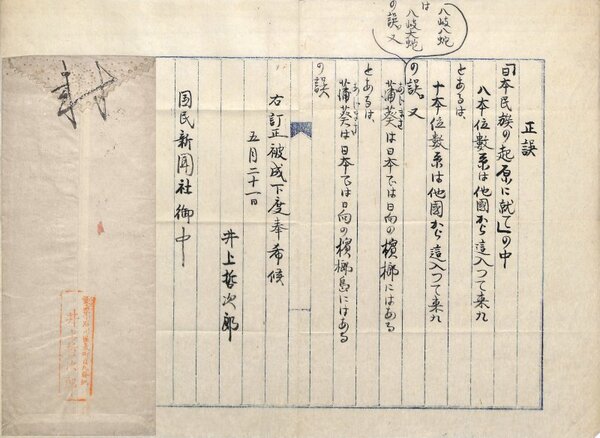 正誤
「日本民族の起原に就て」の中
八本位数系は他國から這入つて来た
とあるは、
十本位数系は他國から這入つて来た
の誤。又
八岐八蛇
は
八岐大蛇
の誤。又
蒲葵は日本では日向の檳榔にはある
とあるは、
蒲葵は日本では日向の檳榔島にはある
の誤
右訂正被成下度奉希候
五月二十一日
井上哲次郎
国民新聞社御中